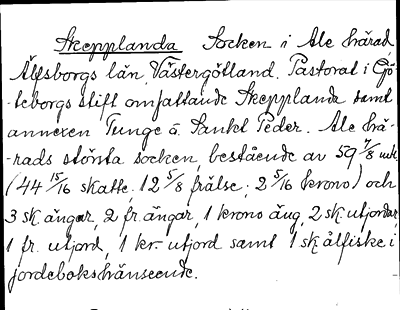 Skepplanda Socken i Ale härad
Älfsborgs län, Västergötland. Pastorat i Gö-
-teborgs stift omfattande Skepplanda samt
annexen Tunge o. Sankt Peder. Ale hä-
-rads största socken bestående av 59 7/8 mtl.
(44 15/16 skatte; 12 5/8 frälse; 2 5/16 krono) och
3 sk ängar, 2 fr. ängar, 1 krono äng, 2 sk utjordar,
1 fr. utjord, 1 kr. utjord samt 1 sk ålfiske i
jordebokshänseende.